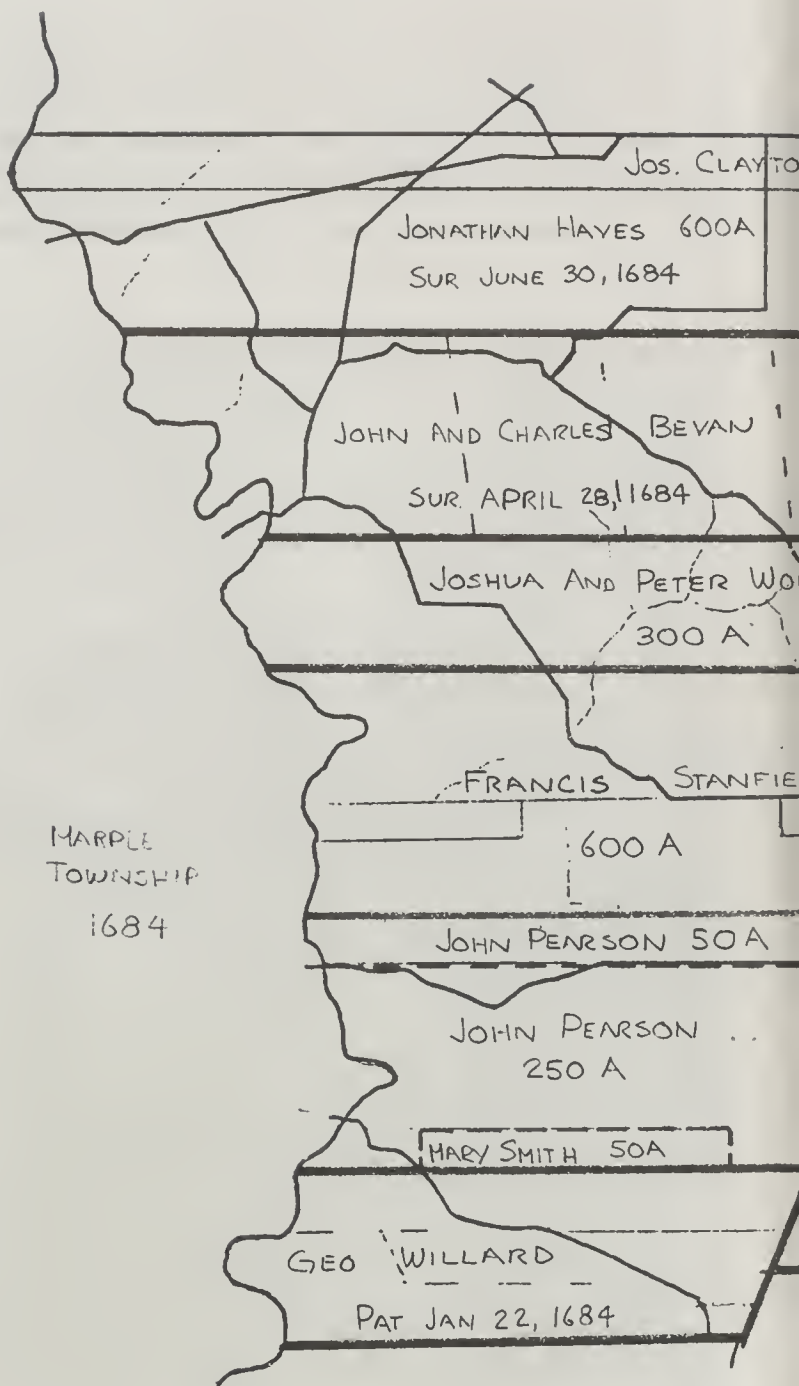 JOS. CLAYTO
JONATHAN HAYES 600A
SUR JUNE 30, 1684
JOHN AND CHARLES BEVAN
SUR. APRIL 28, 1684
JOSHUA AND PETER WO
300 A
FRANCIS STANFIE
600 A
MARPLE
TOWNSHIP
1684
JOHN PEARSON 50 A
JOHN PEARSON
250 A
MARY SMITH 50A
GEO WILLARD
PAT JAN 22, 1684